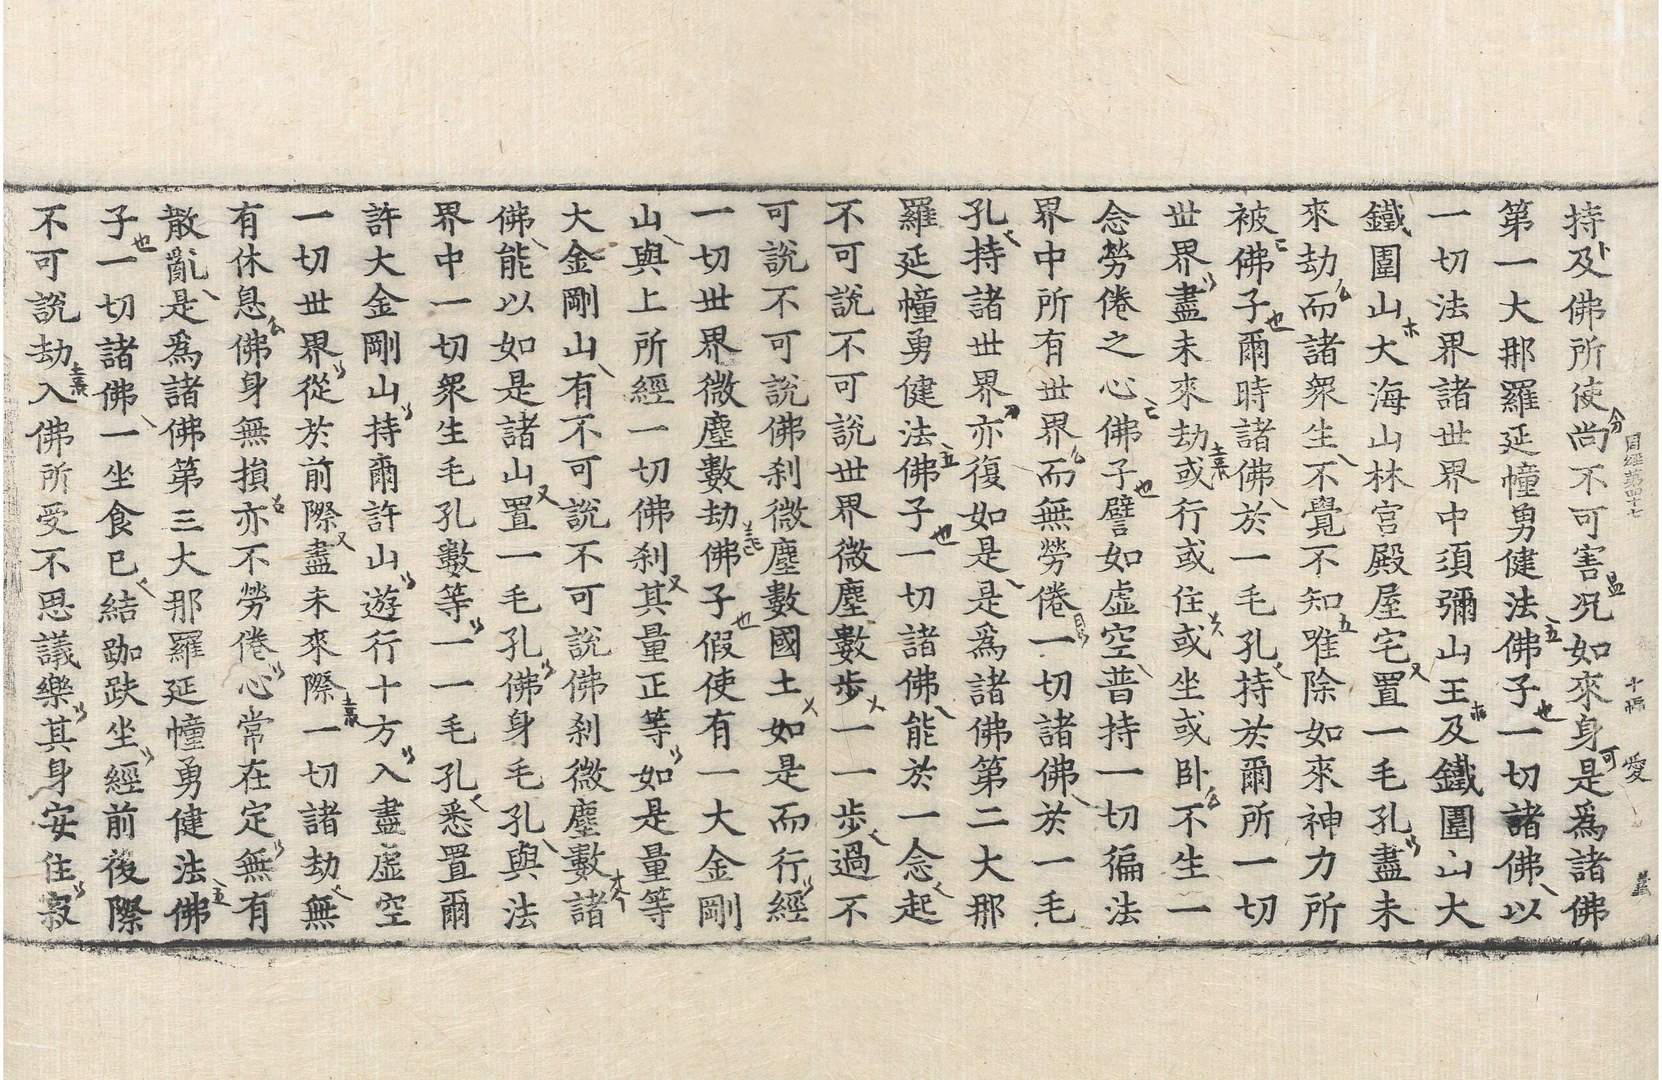 持及佛所使尚不可害况如來身是爲諸佛
第一大那羅延幢勇健法佛子一切諸佛以
一切法界諸世界中須彌山王及鐵圍山大
鐵圍山大海山林宫殿屋宅置一毛孔盡未
來劫而諸衆生不覺不知唯除如來神力所
被佛子爾時諸佛於一毛孔持於爾所一切
世界盡未來劫或行或住或坐或卧不生一
念勞倦之心佛子譬如虛空普持一切徧法
界中所有世界而無勞倦一切諸佛於一毛
孔持諸世界亦復如是是爲諸佛第二大那
羅延幢勇健法佛子一切諸佛能於一念起
不可說不可說世界微塵數步一一步過不
可說不可說佛刹微塵數國土如是而行經
一切世界微塵數劫佛子假使有一大金剛
山與上所經一切佛刹其量正等如是量等
大金剛山有不可說不可說佛刹微塵數諸
佛能以如是諸山置一毛孔佛身毛孔與法
界中一切衆生毛孔數等一一毛孔悉置爾
許大金剛山持爾許山遊行十方入盡虛空
一切世界從於前際盡未來際一切諸劫無
有休息佛身無損亦不勞倦心常在定無有
散亂是爲諸佛第三大那羅延幢勇健法佛
子一切諸佛一坐食已結跏趺坐經前後際
不可說劫入佛所受不思議樂其身安住寂